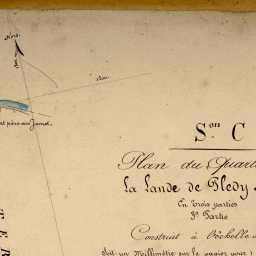 Nord
S.on C
Plan du Quart
la lande de Gledy
En Trois parties
3.e Partie
Construit à l'échelle
soit un Millimètre sur le papier pour
T E R